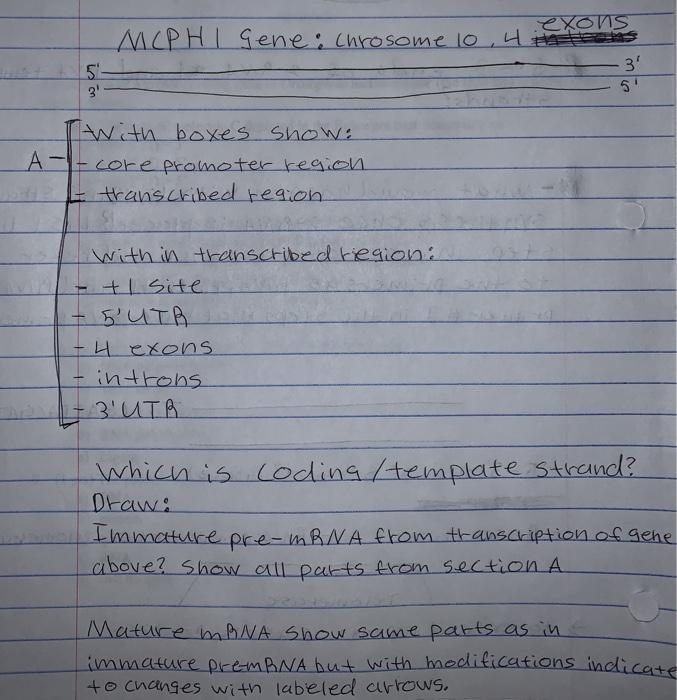 MCPH1 Gene: Chrosome 10, 4 exons
5' 3'
3' 5'
With boxes show:
A - - core promoter region
- transcribed region
within transcribed region:
- +1 site
- 5'UTR
- 4 exons
- introns
- 3'UTR
Which is coding/template strand?
Draw:
Immature pre-mRNA from transcription of gene
above? Show all parts from section A
Mature mRNA show same parts as in
immature premRNA but with modifications indicate
to changes with labeled arrows.